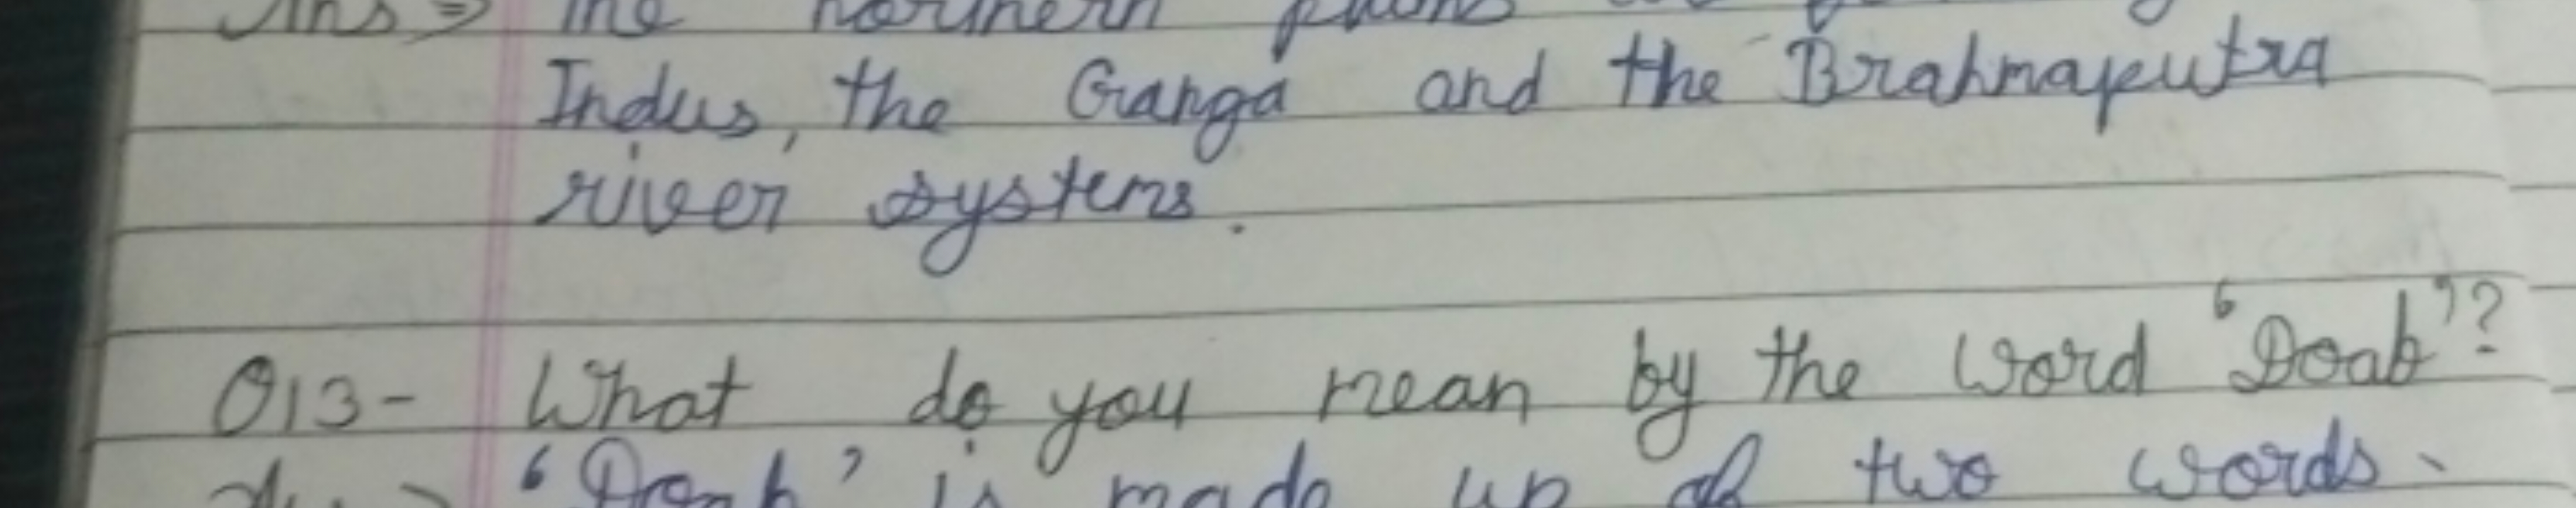 Ans ⇒ The northern plains
Indus, the Ganga and the Brahmaputra
river systems.
Q13- What do you mean by the word 'Doab'?
'Doab' is made up of two words.